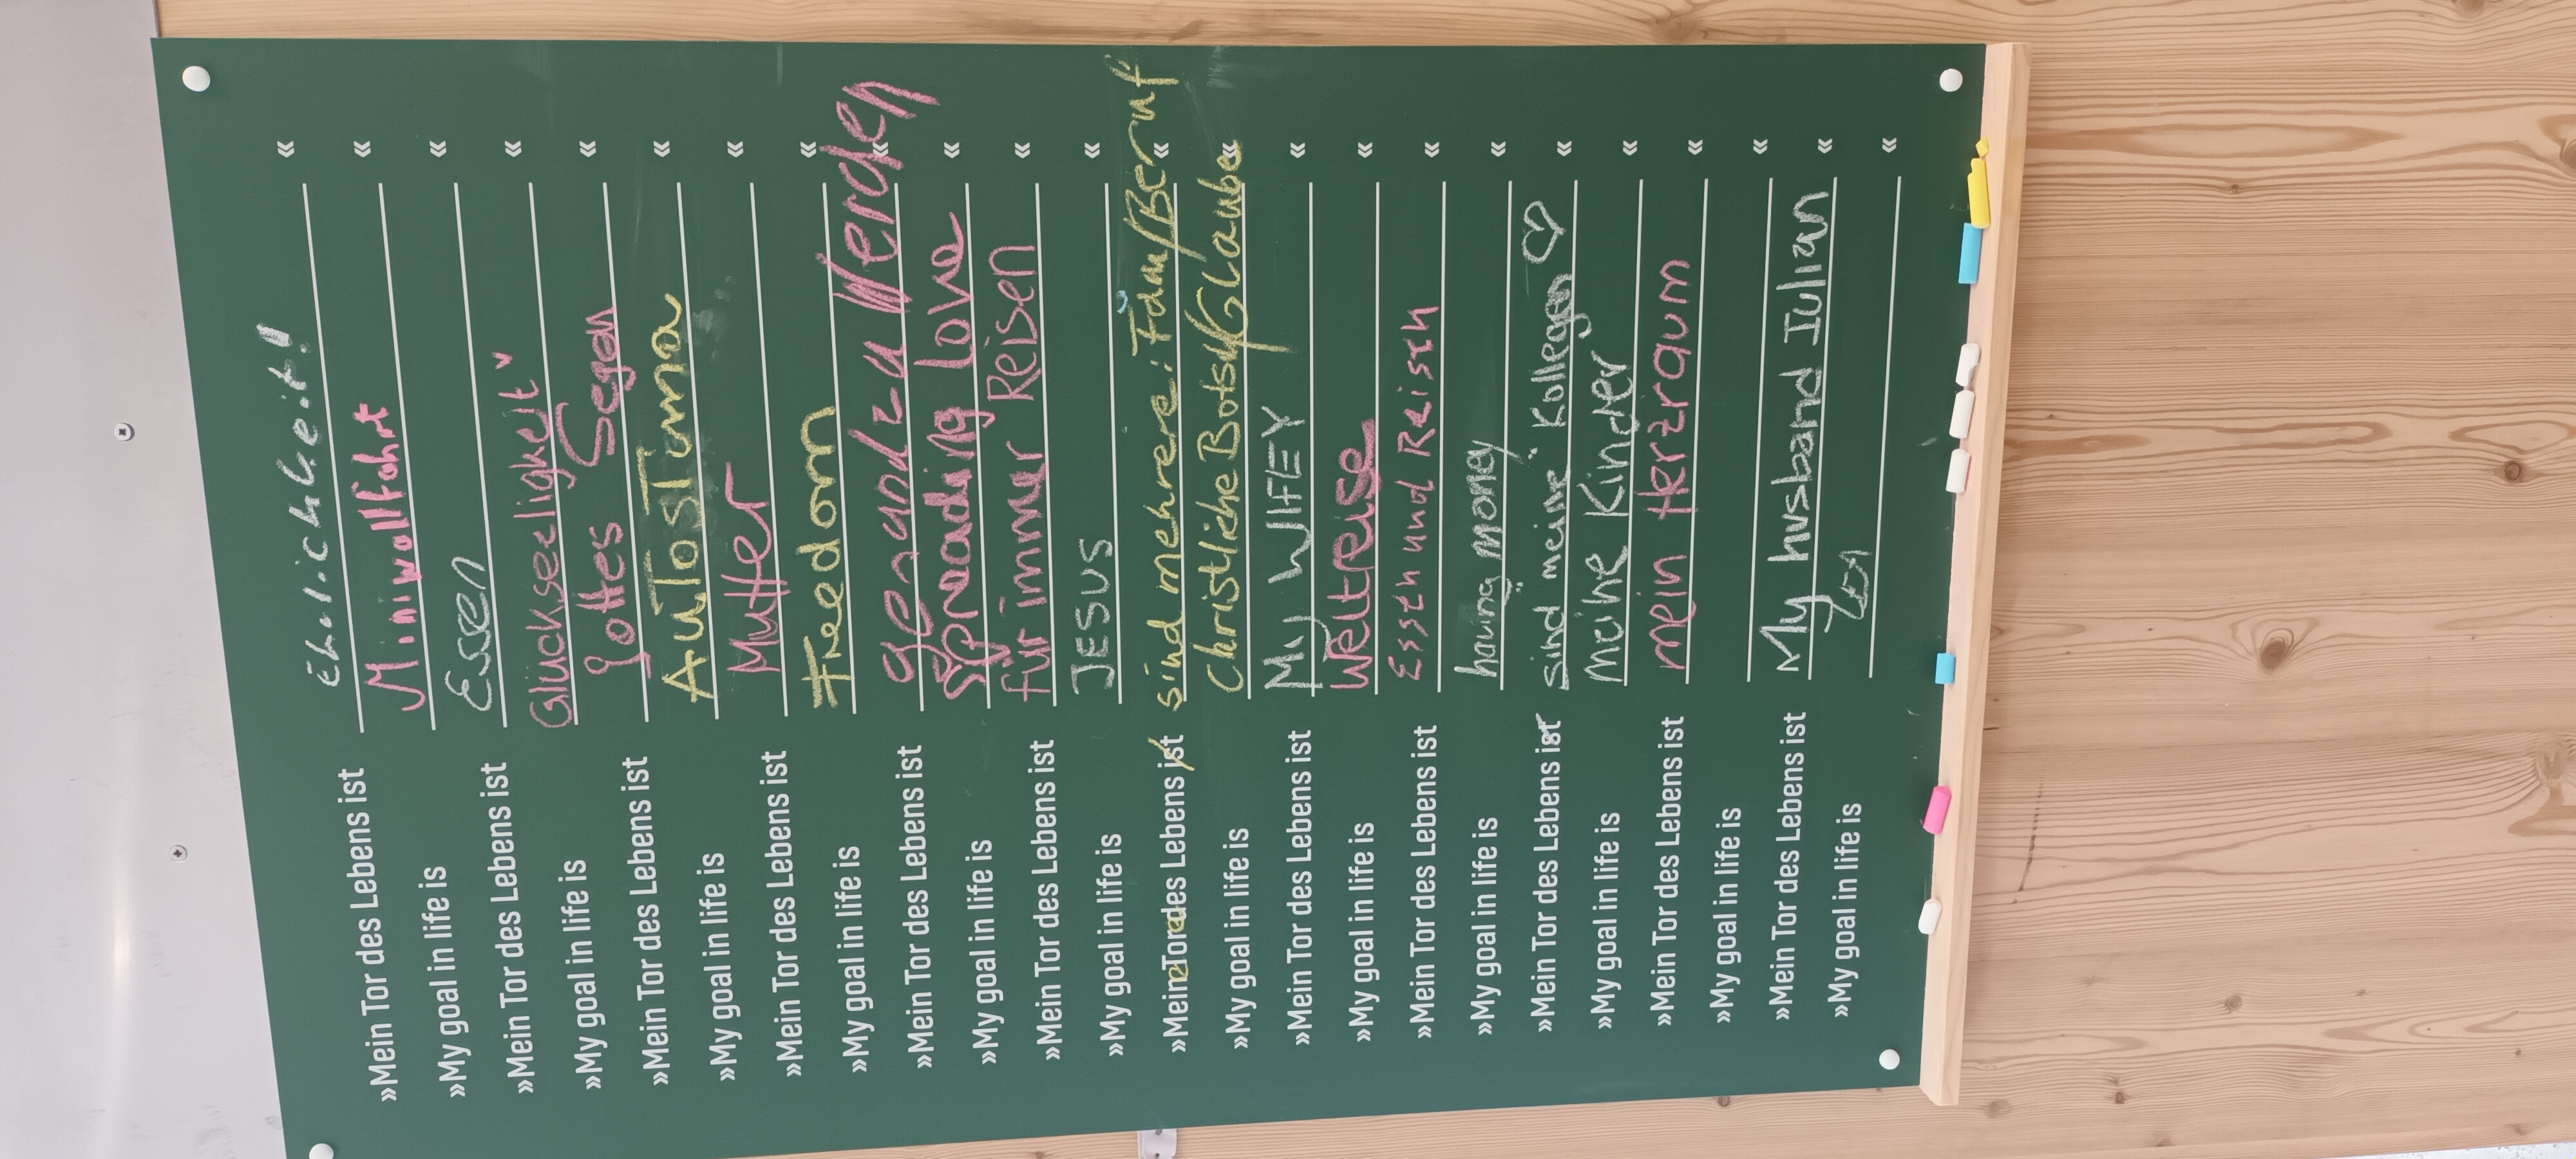 »Mein Tor des Lebens ist Ehrlichkeit! «
»My goal in life is Miniwallfahrt «
»Mein Tor des Lebens ist Essen «
»My goal in life is Glückseeligkeit «
»Mein Tor des Lebens ist gottes Segen «
»My goal in life is «
»Mein Tor des Lebens ist Mutter «
»My goal in life is Freedom «
»Mein Tor des Lebens ist gesund zu werden «
»My goal in life is Spreading Love «
»Mein Tor des Lebens ist für immer Reisen «
»My goal in life is JESUS «
»Meine Tore des Lebens ist sind mehrere: Fam/Beruf «
»My goal in life is Christliche Botsch/Glaube «
»Mein Tor des Lebens ist My WIFEY «
»My goal in life is Weltreise «
»Mein Tor des Lebens ist Essen und Reisen «
»My goal in life is having money «
»Mein Tor des Lebens ist sind meine Kollegen ♡ «
»My goal in life is Meine Kinder «
»Mein Tor des Lebens ist mein Herzraum «
»My goal in life is «
»Mein Tor des Lebens ist My husband Iulian «
»My goal in life is «